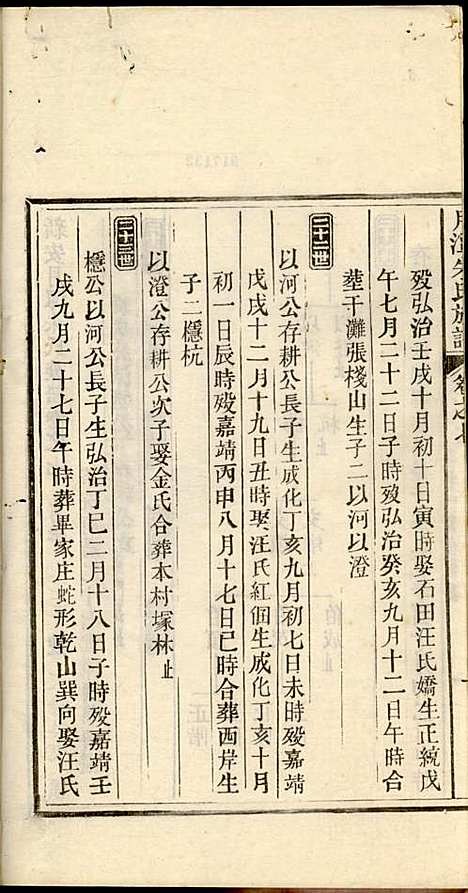 歿弘治壬戌十月初十日寅時娶石田汪氏嬌生正統戊
午七月二十二日子時歿弘治癸亥九月十二日午時合
塟干灘張棧山生子二以河以澄
二十二世
以河公存耕公長子生成化丁亥九月初七日未時歿嘉靖
戊戌十二月十九日丑時娶汪氏紅個生成化丁亥十月
初一日辰時歿嘉靖丙申八月十七日巳時合葬西岸生
子二櫽杭
以澄公存耕公次子娶金氏合葬本村塚林止
二十三世
櫽公以河公長子生弘治丁巳二月十八日子時歿嘉靖壬
戌九月二十七日午時葬畢家庄蛇形乾山巽向娶汪氏